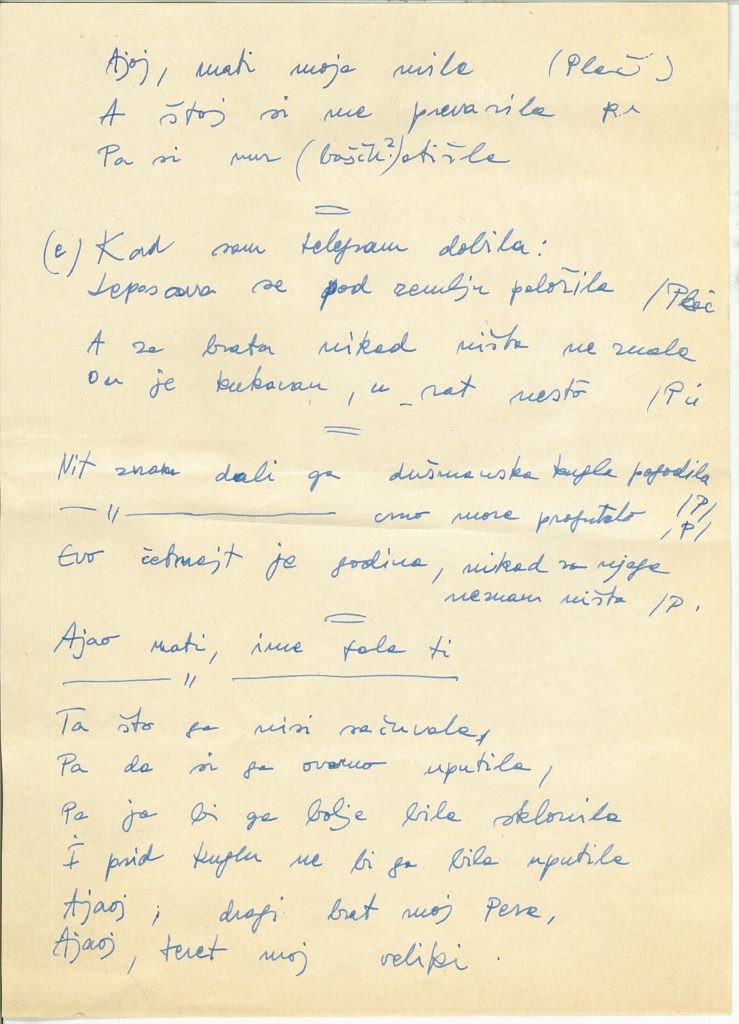 Ajoj, mati moja mila (Plač)
A štoj si me prevarila
Pa si mi (bošću?) otišla
(e) Kad sam telegram dobila:
Leposava se pod zemlju položila /Plač
A za brata nikad ništa ne znala
On je kukavan, u rat nestō /P
Nit znam dali ga dušmanska kugla pogodila
— " — crno more progutalo /P/
/P/
Evo četrnajt je godina, nikad za njega
neznam ništa /P.
Ajao mati, ime fala ti
— " —
Ta što ga nisi sačuvala,
Pa da si ga ovamo uputila,
Pa ja bi ga bolje bila sklonila
I prid kuglu ne bi ga bila uputila
Ajaoj, dragi brat moj Pera,
Ajaoj, teret moj veliki.